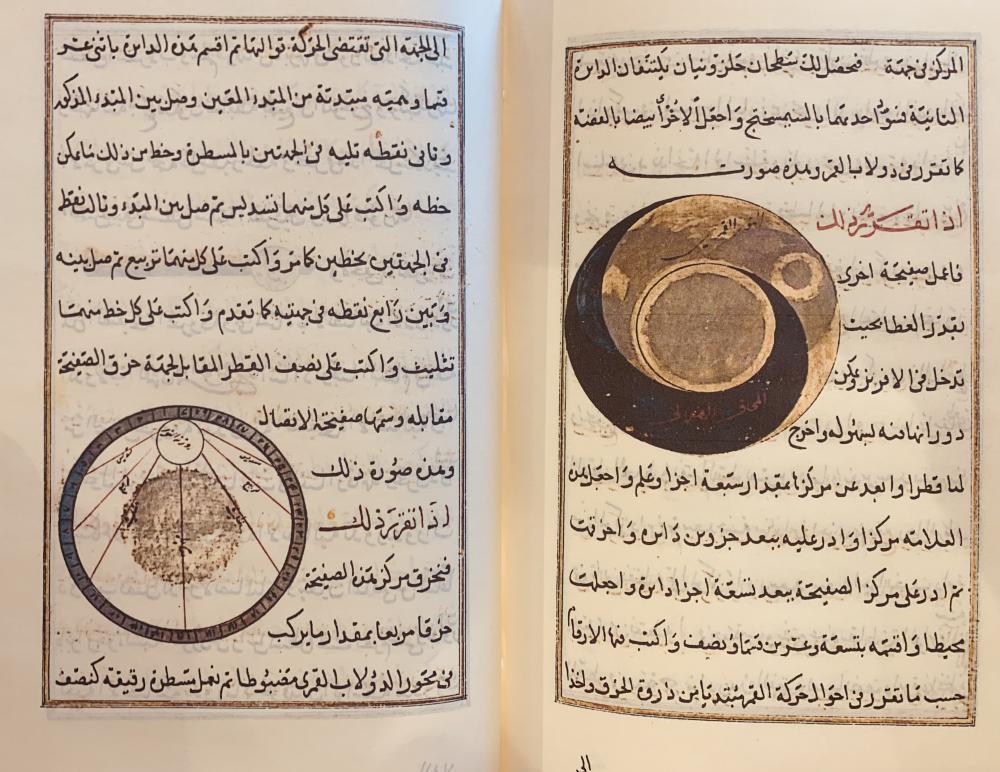 المركز في جهة فحصل لك سطحان حلزونيان يكتنفان الدايرة
الثانية فسود احدهما بالسمسختج واجعل الاخر ابيضا بالفضة
كما تقرر في دولاب القمر وهذه صورته
اذا تقرر ذلك
فاعمل صفيحة اخرى
بقدر الغطا بحيث
تدخل في الافريز ويمكن
دورانها منه بسهولة واخرج
لها قطرا وابعد عن مركزها مقدار سبعة اجزا وعلم واجعل من
العلامه مركزا وادر عليه ببعد جزوين دايرة واخرقت
ثم ادر على مركز الصفيحة ببعد تسعة اجزا دايرة واجعلها
محيطا واقسمه بتسعة وعشرين قسما ونصف واكتب فيها الارقام
حسب ما تقرر في احوال حركة القمر مبتديا من ذروة الخرق واخذا
الى
المحاق
الى الجهة التى تقتضى الحركة تواليها ثم اقسم هذه الدايرة باثنى عشر
قسما وهميه مبتدئة من المبتدء المعين وصل بين المبتدء المذكور
وثانى نقطه تليه فى الجهتين بالمسطرة وخط من ذلك ما يمكن
خطه واكتب على كل منهما تسديس ثم صل بين المبتدء وثالث نقط
فى الجهتين بخطين كما مر واكتب على كل منهما تربيع ثم صل بينه
وبين رابع نقطه فى جهتيه كما تقدم واكتب على كل خط منهما
تثليث واكتب على نصف القطر المقابل لجهة خرق الصفيحة
مقابله وسمها صفيحة الاتصال
وهذه صورة ذلك
اذا تقرر ذلك
فنخرق مركز هذه الصفيحة
خرقا مربعا بمقدار ما يركب
فى محور الدولاب القمرى مضبوطا ثم نعمل شطرة رقيقه كنصف